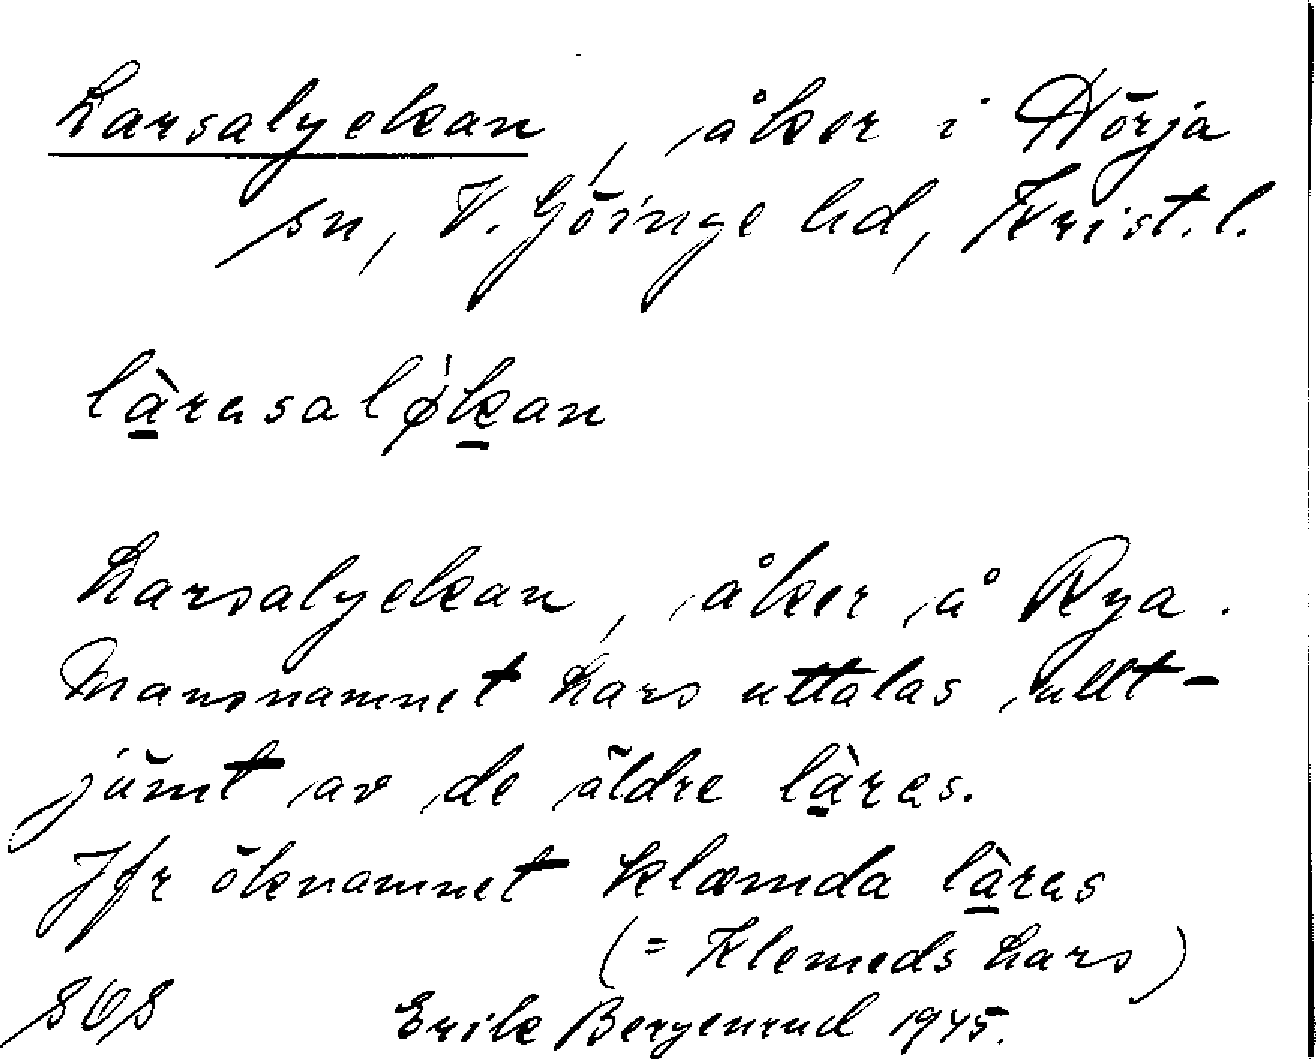 Larsalyckan, åker i Hörja
sn, V. Göinge hd, Krist. l.
là̱rasalø̍ḵan
Larsalyckan, åker å Rya.
Mansnamnet Lars uttalas allt-
jämt av de äldre là̱ras.
Jfr öknamnet klæmda là̱ras
(= Klemeds Lars)
SOS Erik Bergenrud 1945.